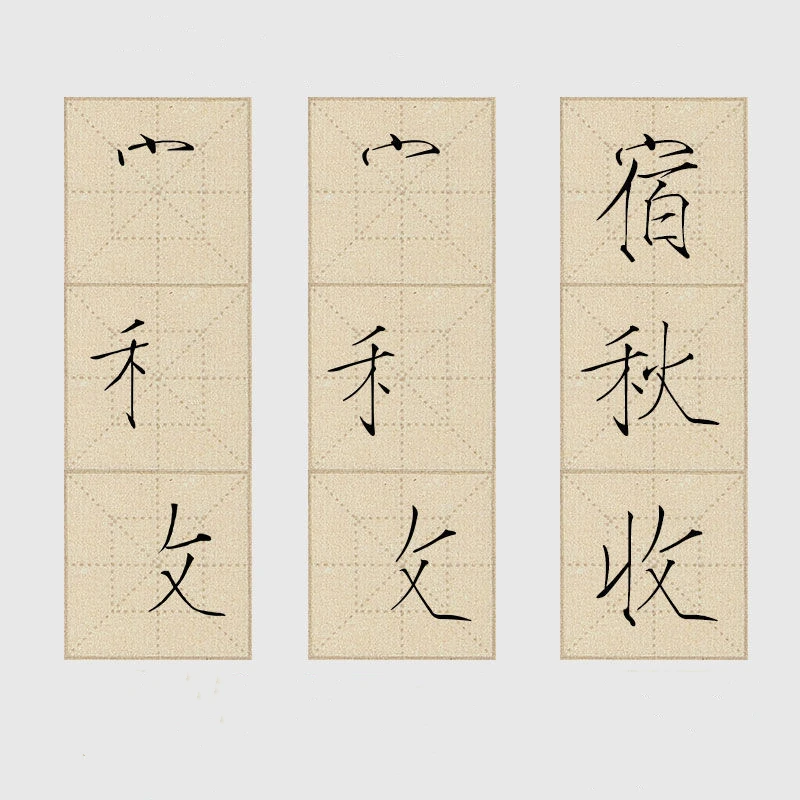 宀 宀 宿
禾 禾 秋
攵 攵 收